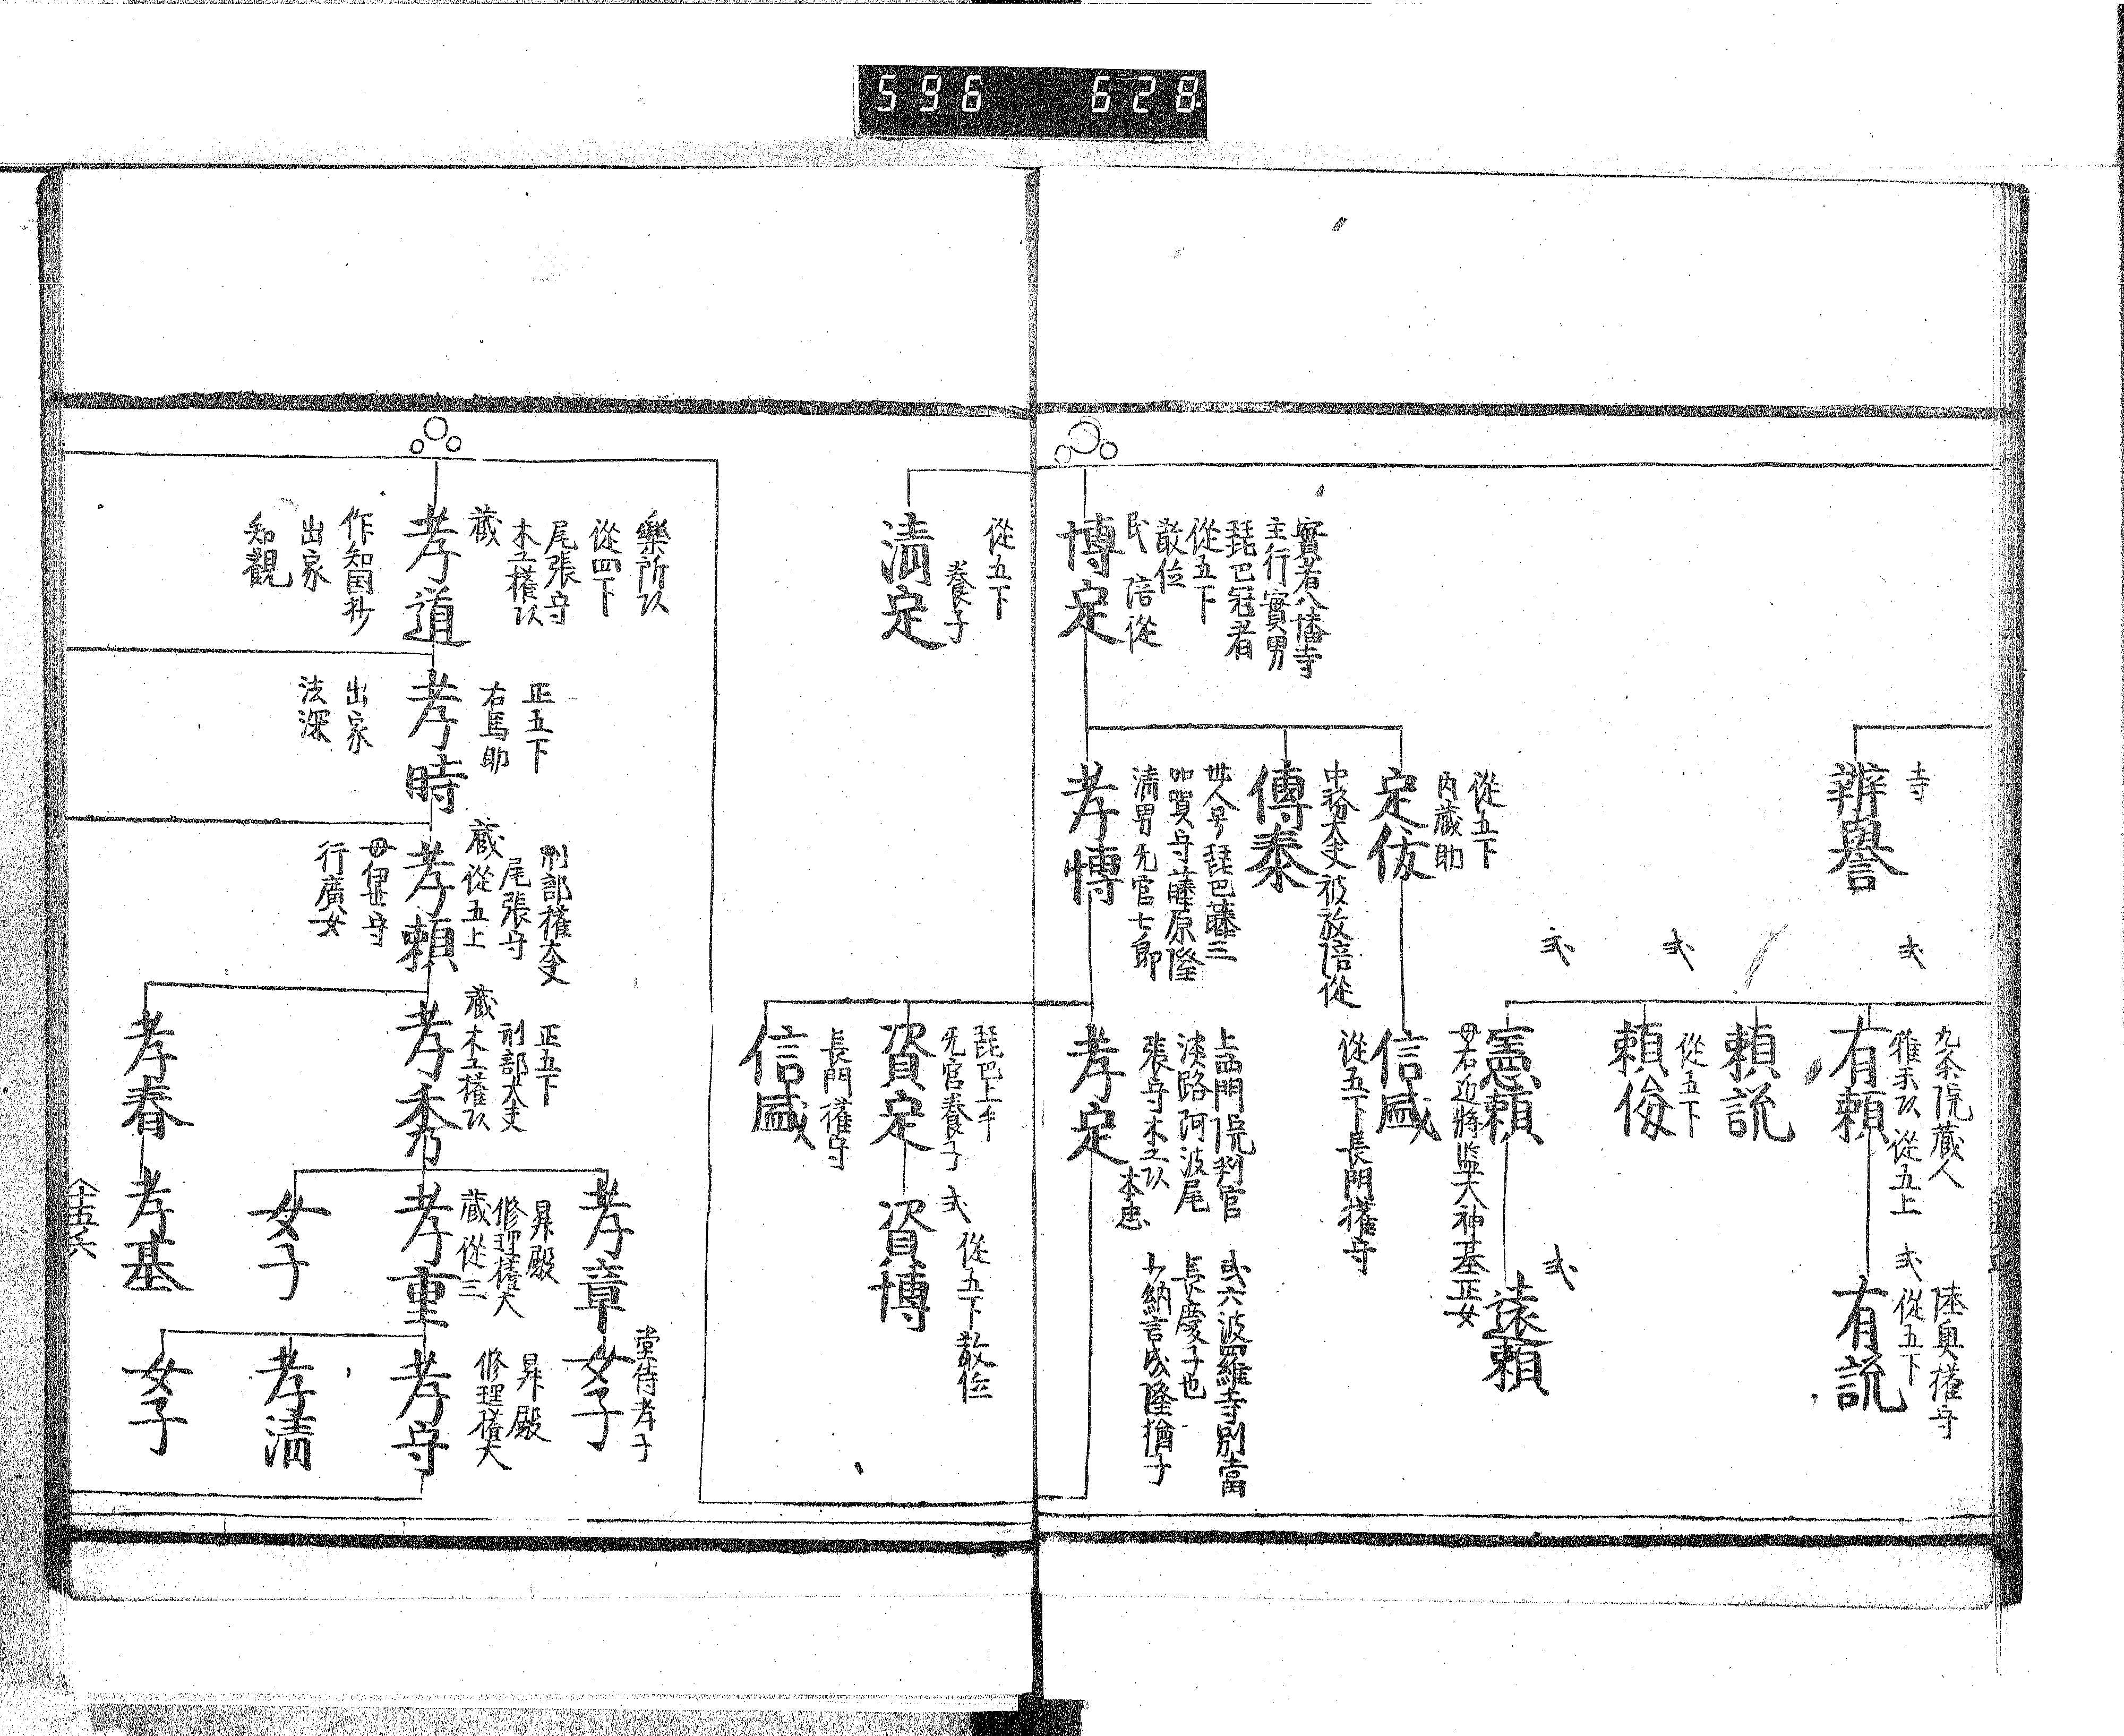 596 628
寺
辨譽
九条院蔵人
雅楽以 從五上
弐
有頼
陸奥權守
從五下
弐
有説
頼説
弐
從五下
頼俊
弐
憲頼
母右近將監大神基正女
弐
遠頼
實者八幡寺
主行實男
琵巴冠者
從五下
散位
民 陪從
博定
從五下
内蔵助
定仿
從五下長門權守
信盛
中務大夫被放陪從
傳泰
世人号琵巴藤三
加賀守藤原隆
清男先官七郎
孝博
上西門院判官
淡路阿波尾
張守木工以
本忠
孝定
或六波羅維寺別當
長慶子也
少納言成隆猶子
從五下
養子
清定
琵巴上手
先官養子
資定
弐
從五下散位
資博
長門權守
信盛
樂所以
從四下
尾張守
木工權以
蔵
孝道
作知国抄
出家
知觀
正五下
右馬助
孝時
出家
法深
刑部權大夫
尾張守
蔵從五上
孝頼
母伊世守
行廣女
正五下
刑部大夫
蔵木工權以
孝秀
孝春
孝基
孝章
堂侍孝子
女子
昇殿
修理權大
蔵從三
孝重
女子
昇殿
修理權大
孝守
孝清
女子